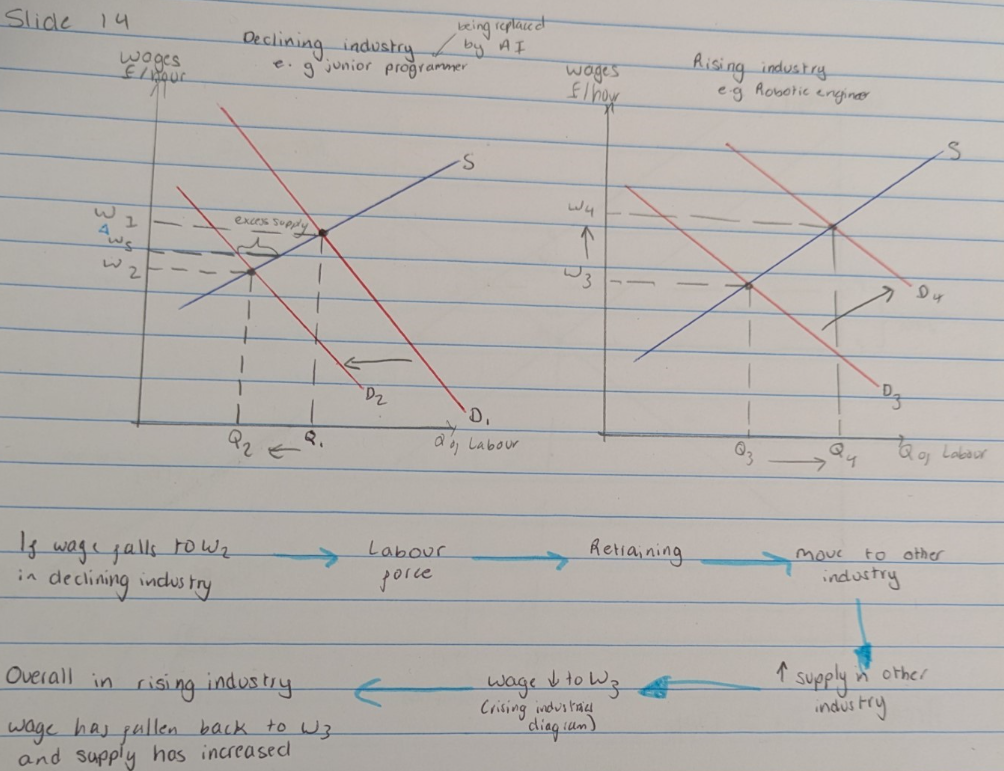 Slide 14
being replaced
by AI
Declining industry
e.g junior programmer
wages
£/hour
W1
Ws
W2
excess supply
S
D2
D1
Q2 ← Q1
Q of Labour
Rising industry
e.g Robotic engineer
wages
£/hour
W4
W3
S
D4
D3
Q3 → Q4
Q of Labour
If wage falls to W2
in declining industry
Labour
force
Retraining
move to other
industry
↑ supply in other
industry
wage ↓ to W3
(rising industries
diagram)
Overall in rising industry
wage has fallen back to W3
and supply has increased